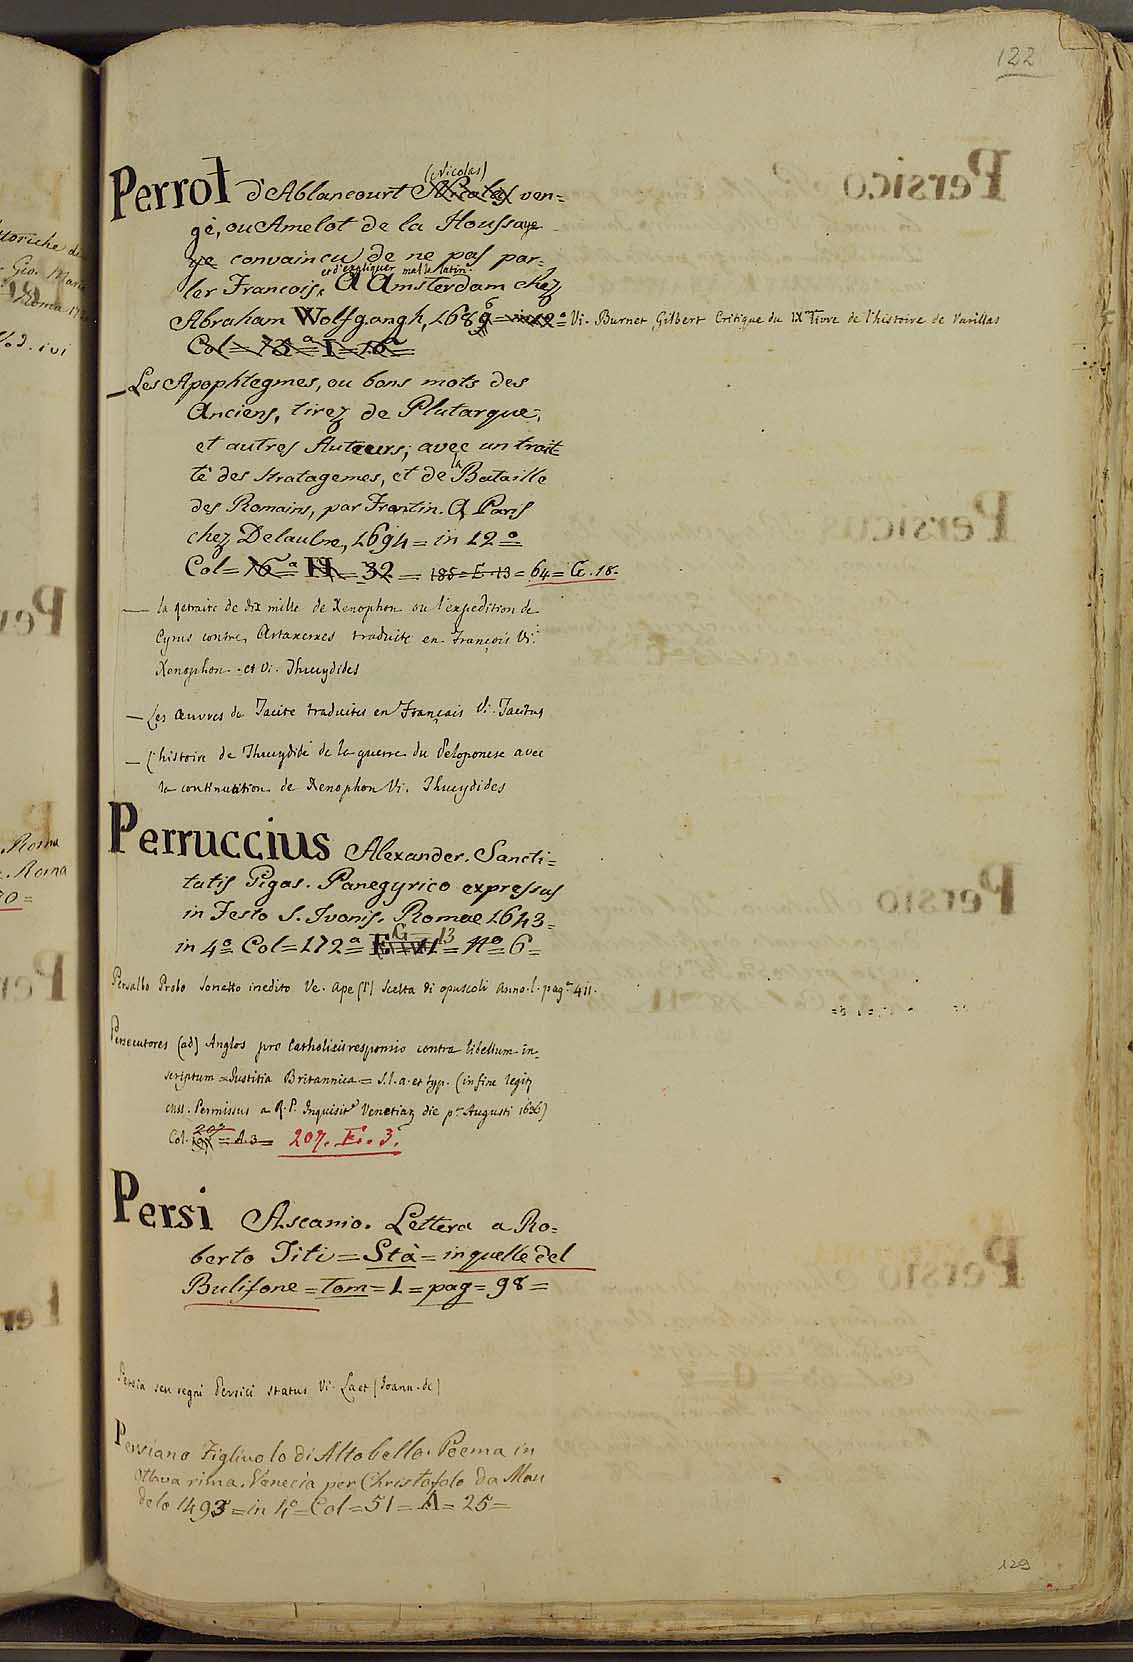 122
Perrot d'Ablancourt (Nicolas) ven=
gé, ou Amelot de la Houssaye
convaincu de ne pas par=
ler Francois, et d'expliquer mal le latin. A Amsterdam chez
Abraham Wolfgangh, 1686 = in 12º = Vi. Burnet Gilbert Critique du IX.me livre de l'histoire de Varillas
Col = 78ª = I = 16 =
— Les Apophtegmes, ou bons mots des
Anciens, tirez de Plutarque,
et autres Auteurs; avec un trait=
té des stratagemes, et de la Bataille
des Romains, par Frontin. A Paris
chez Delaulne, 1694 = in 12º =
Col = 76ª = H = 32 = 185 = E. 13 = 64 = G. 18.
— la retraite de dix mille de Xenophon ou l'expedition de
Cyrus contre Artaxerxes traduite en François Vi.
Xenophon. et Vi. Thucydides
— Les Œuvres de Tacite traduites en Français Vi. Tacitus
— l'histoire de Thucydide de la guerre du Peloponese avec
la continuation de Xenophon Vi. Thucydides
Perruccius Alexander. Sancti=
tatis Gigas. Panegyrico expressus
in Festo S. Ivonis. Romae 1643=
in 4º Col = 172ª = G 13 = Nº 6 =
Persallo Probo Sonetto inedito Ve. Ape (l') Scelta di opuscoli Anno. I. pag.ª 411.
Persecutores (ad) Anglos pro Catholicis responsio contra libellum in=
scriptum = Justitia Britannica = s.l.a. et typ. (in fine legit
Permissus a R. P. Inquisit.e Venetiar die p.ª Augusti 1636)
Col. 207 = A. 3 = 207. E. 3.
Persi Ascanio. Lettera a Ro=
berto Titi = Stà = in quelle del
Bulifone = Tom = 1 = pag = 98 =
Persia seu regni Persici status Vi. Laet (Joann. de)
Persiano Figliuolo di Altobello. Poema in
ottava rima. Venecia per Christofolo da Man
delo 1493 = in 4º = Col = 51 = A = 25 =
129